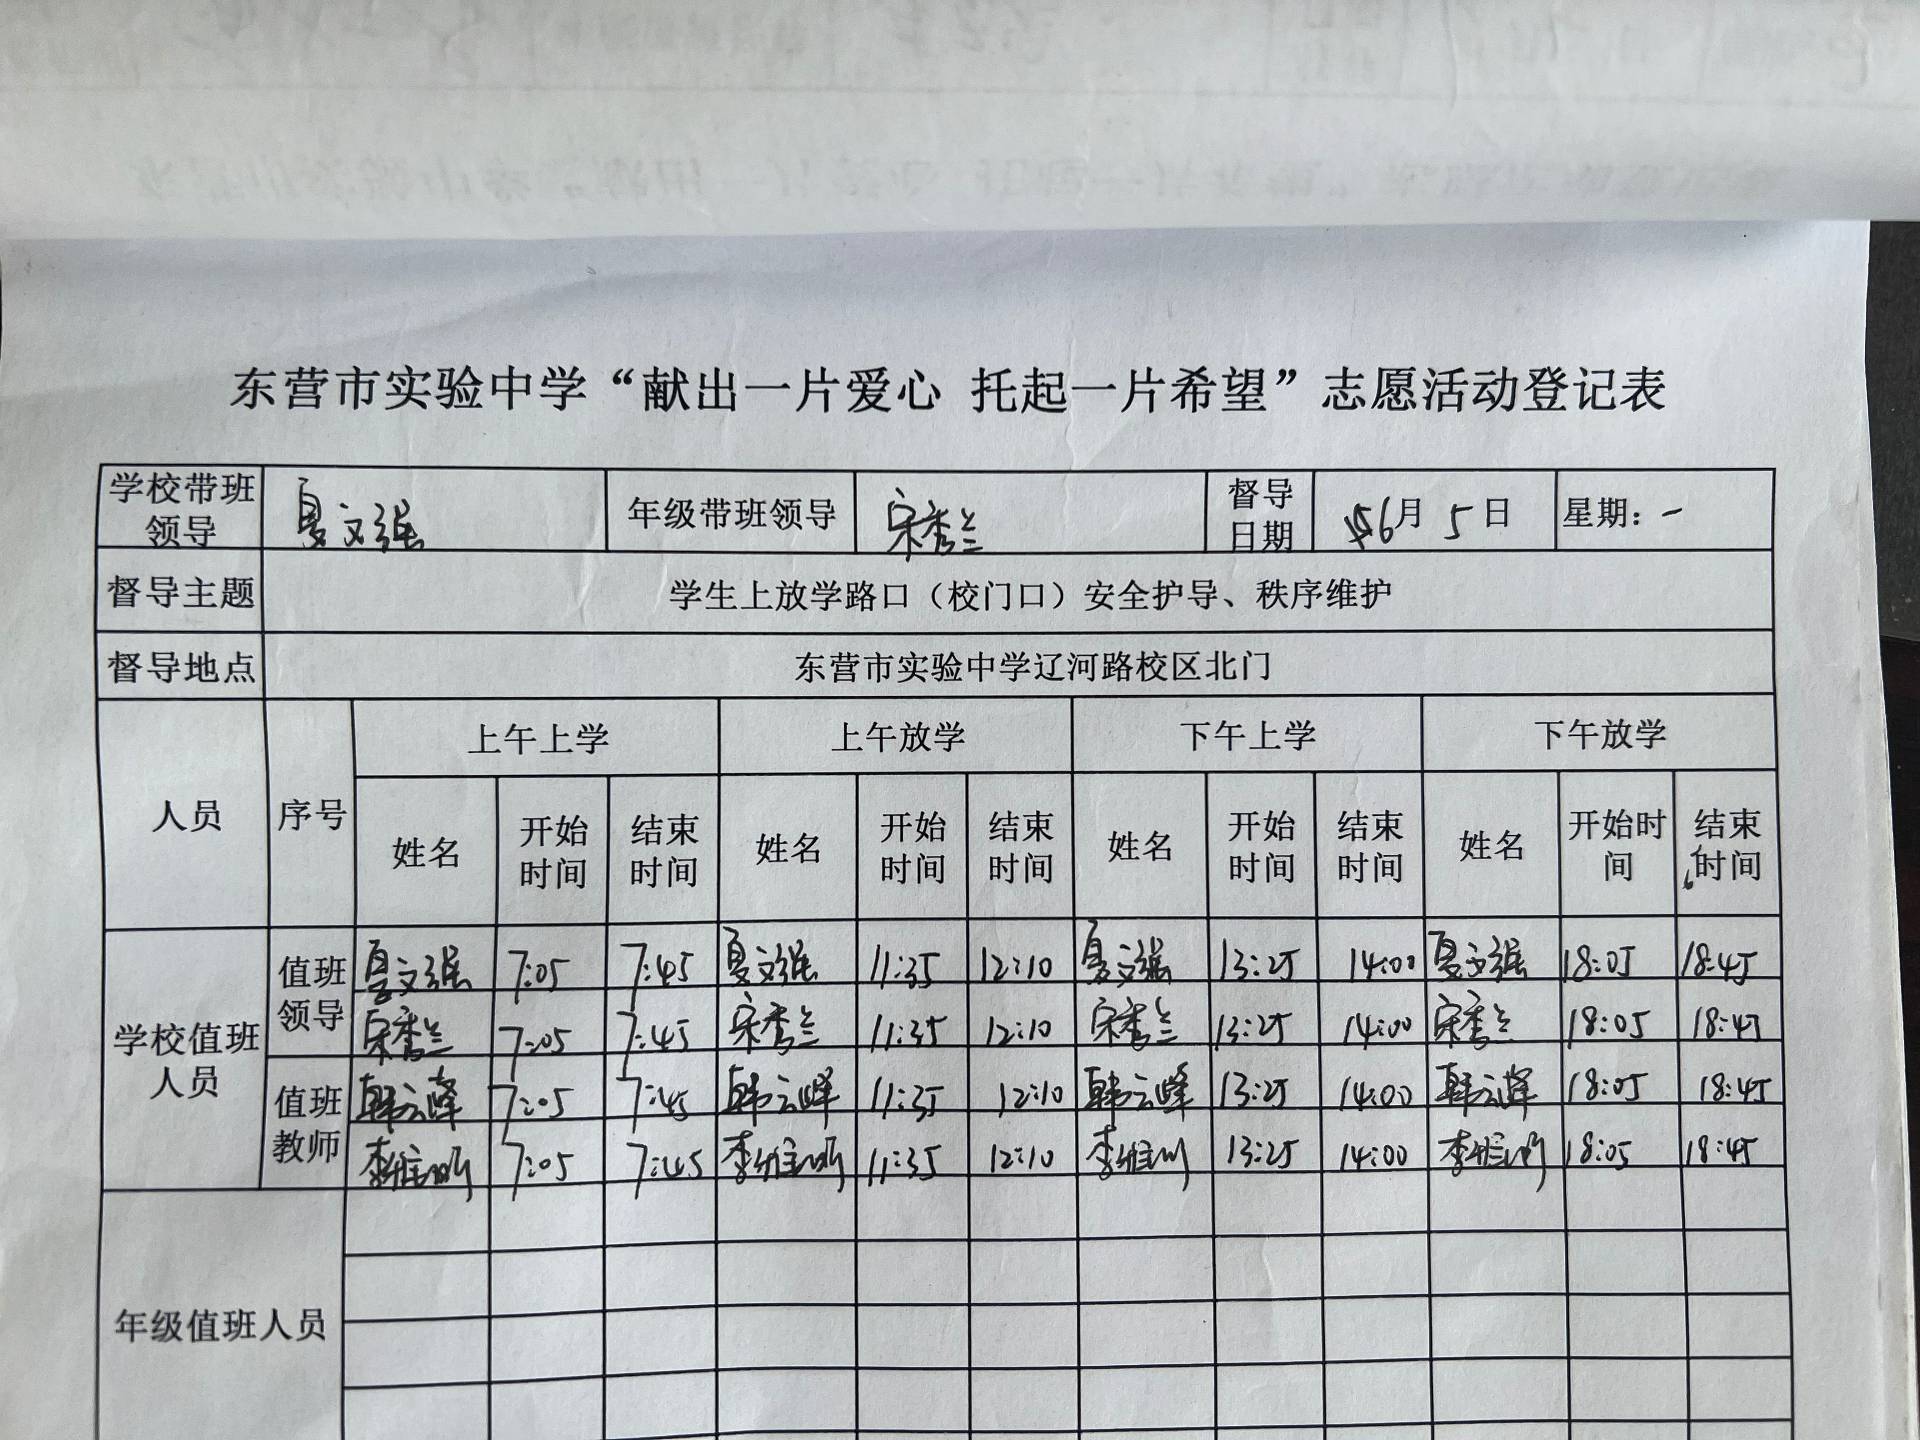 东营市实验中学“献出一片爱心 托起一片希望”志愿活动登记表
学校带班领导 夏文强 年级带班领导 宋秀兰 督导日期 6月5日 星期：一
督导主题 学生上放学路口（校门口）安全护导、秩序维护
督导地点 东营市实验中学辽河路校区北门
人员 序号 上午上学 上午放学 下午上学 下午放学
姓名 开始时间 结束时间 姓名 开始时间 结束时间 姓名 开始时间 结束时间 姓名 开始时间 结束时间
学校值班人员
值班领导
夏文强 7:05 7:45 夏文强 11:35 12:10 夏文强 13:25 14:00 夏文强 18:05 18:45
宋秀兰 7:05 7:45 宋秀兰 11:35 12:10 宋秀兰 13:25 14:00 宋秀兰 18:05 18:45
值班教师
韩云峰 7:05 7:45 韩云峰 11:35 12:10 韩云峰 13:25 14:00 韩云峰 18:05 18:45
李 7:05 7:45 李 11:35 12:10 李 13:25 14:00 李 18:05 18:45
年级值班人员